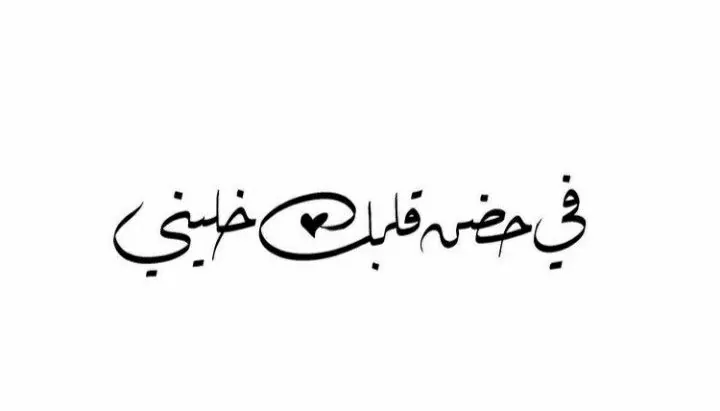 في حضن قلبك خليني